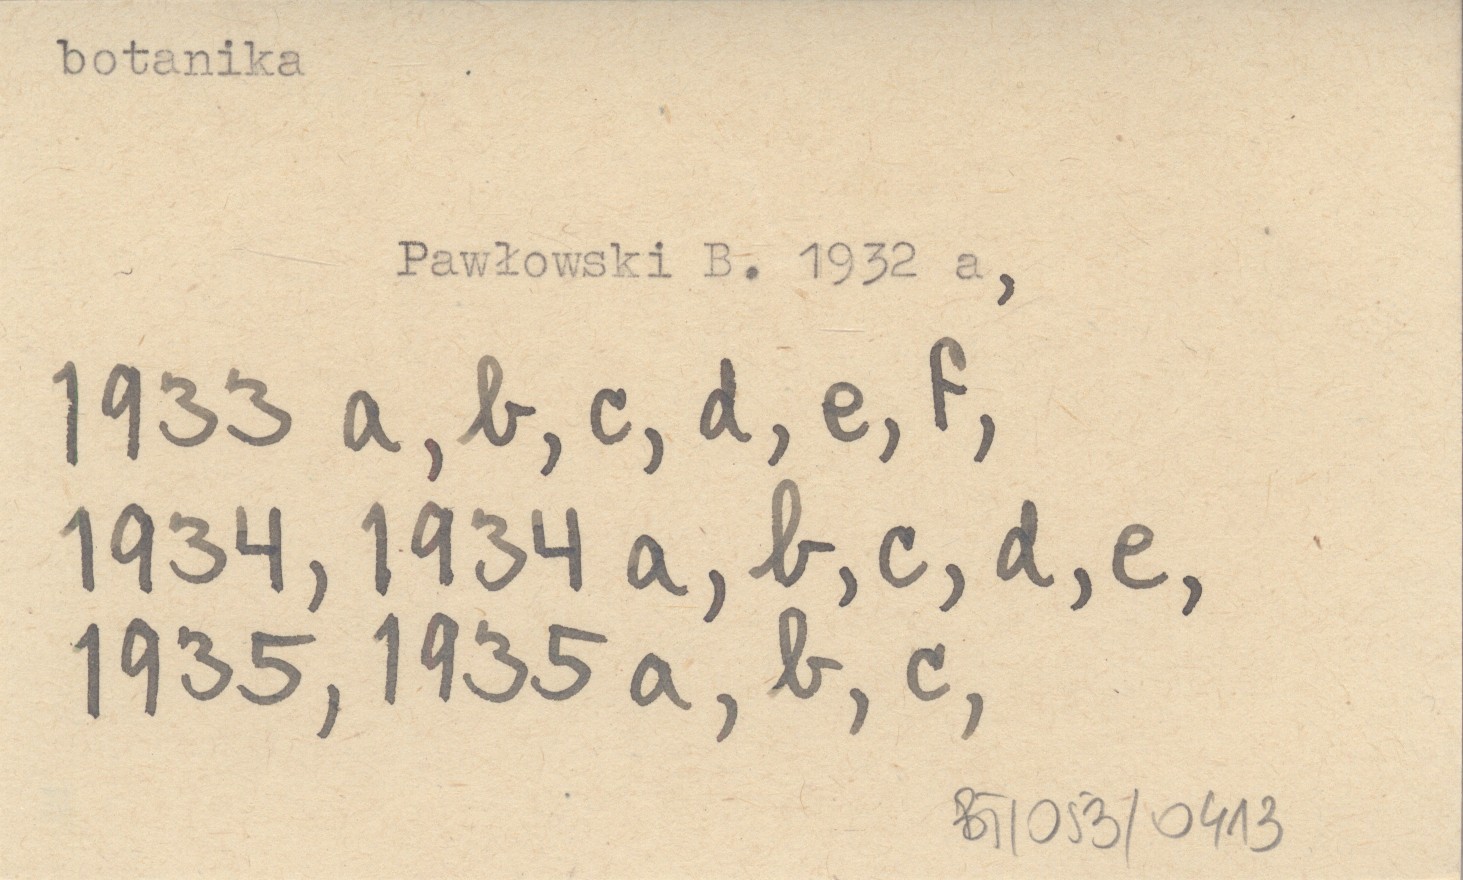 botanika
Pawłowski B. 1932 a,
1933 a, b, c, d, e, f,
1934, 1934 a, b, c, d, e,
1935, 1935 a, b, c,
/053/0413